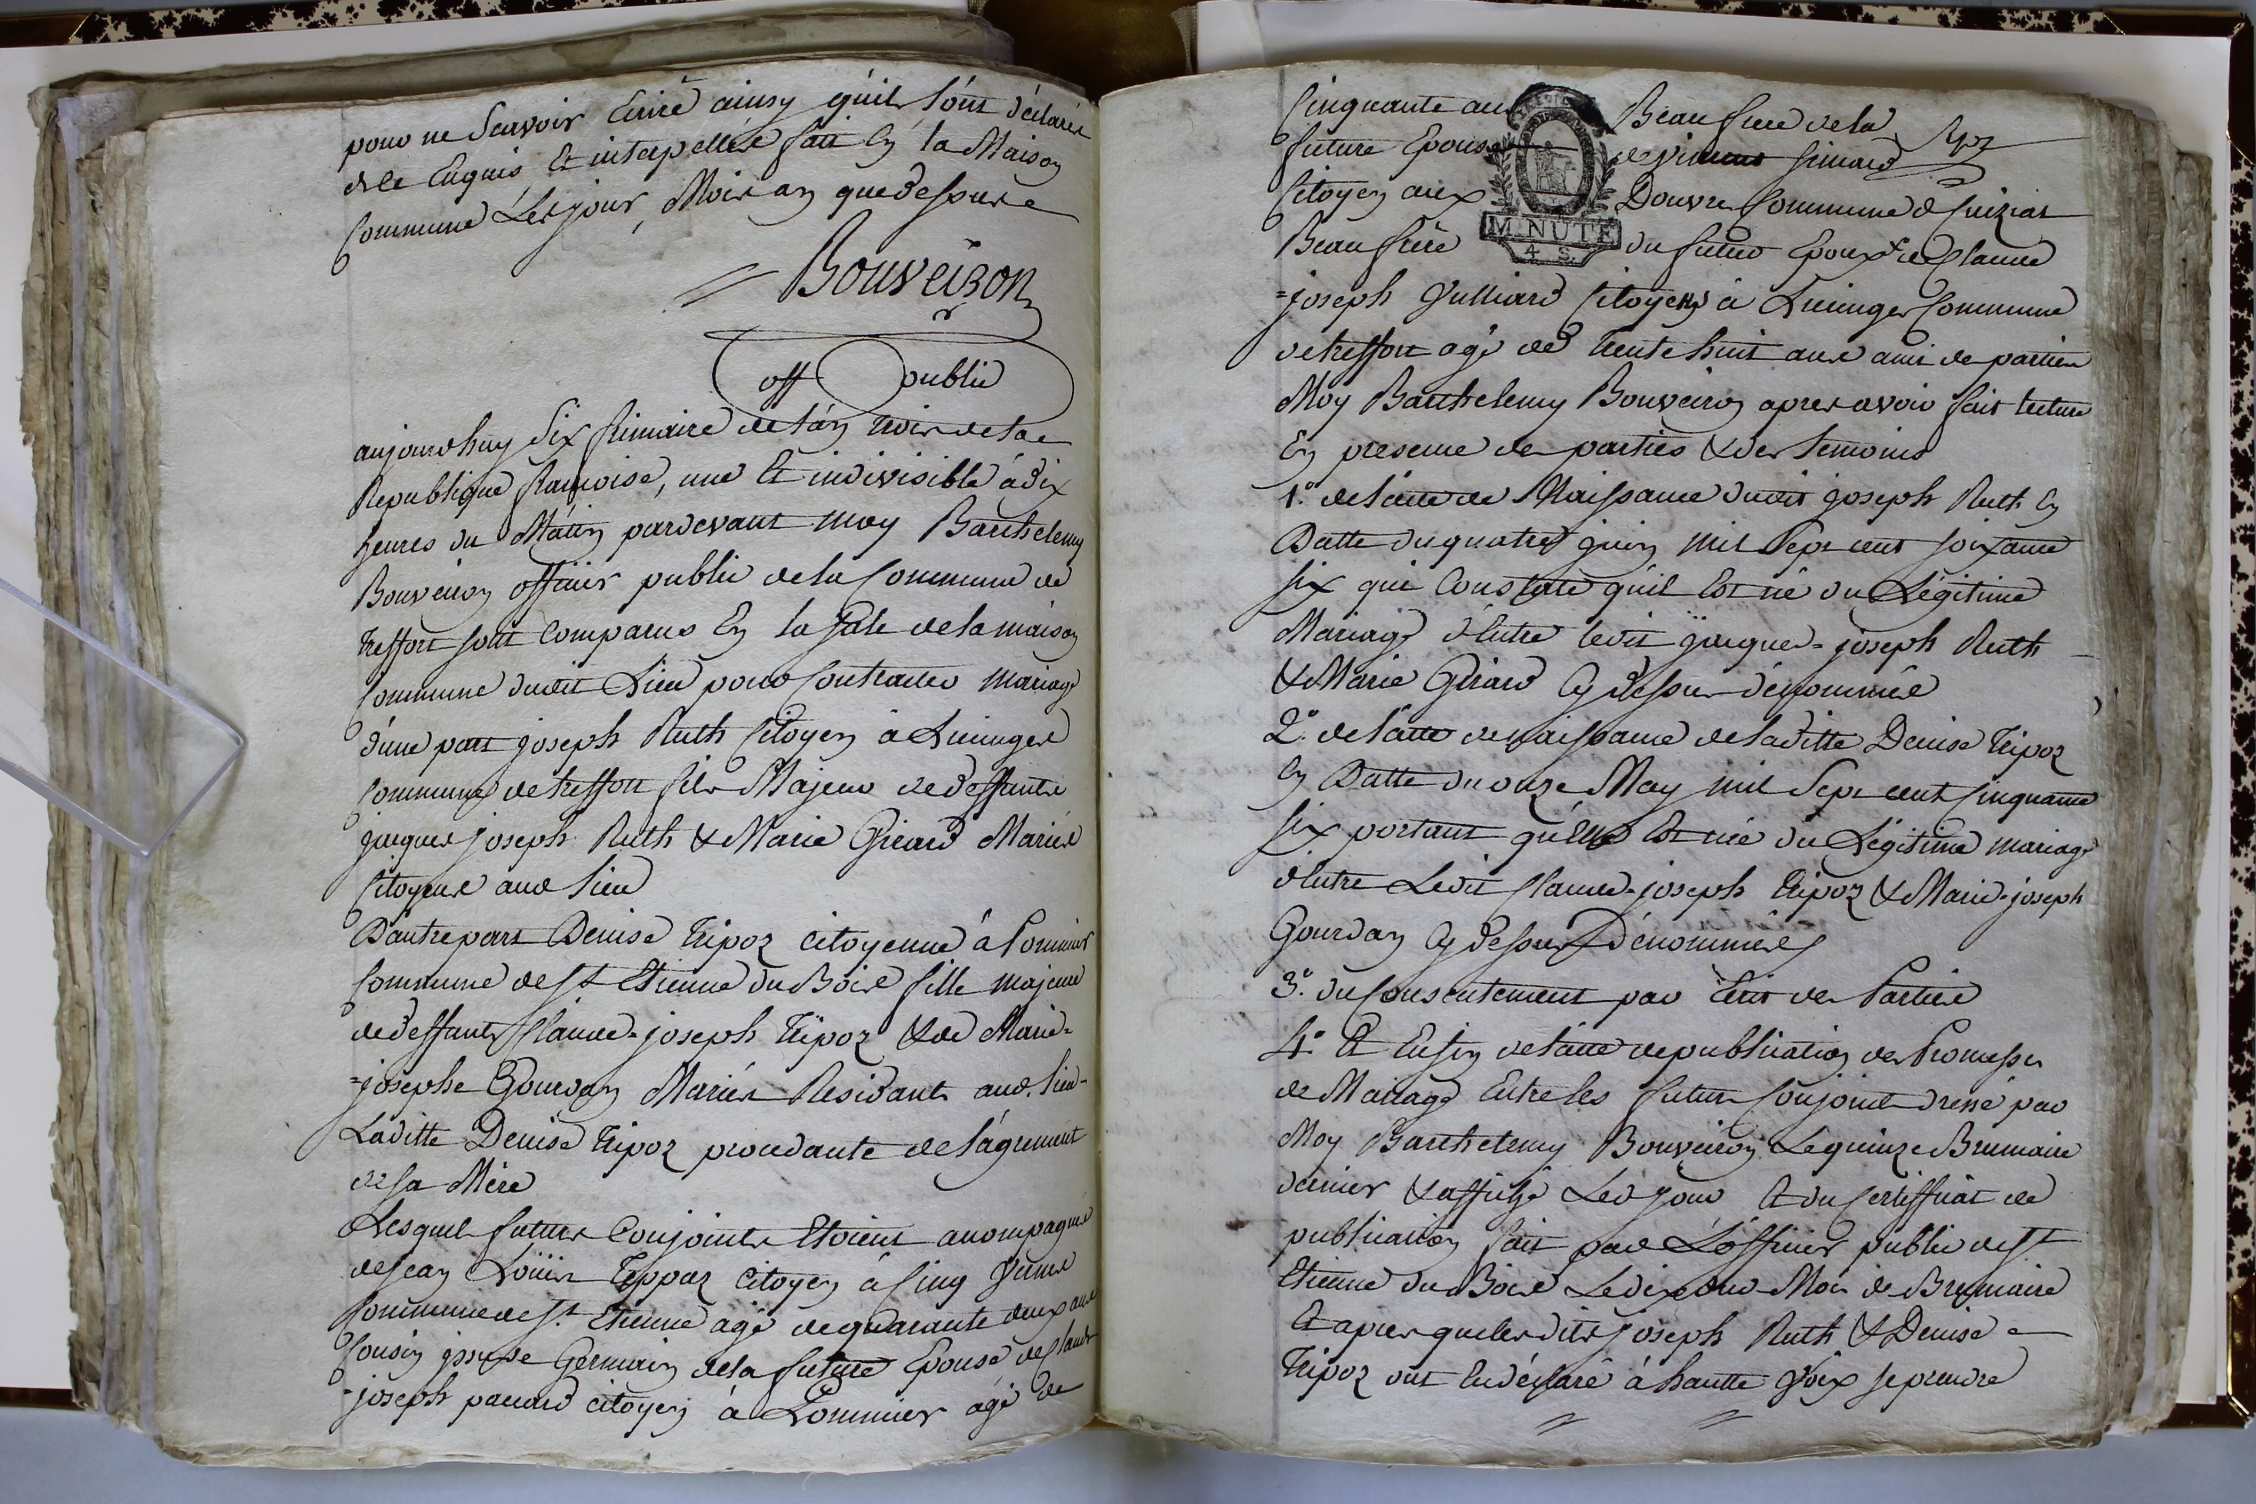 pour ne Scavoir Ecrire ainsy qu'ils L'ont déclarés
de ce Enquis Et interpellés fait En la Maison
Commune Les jour, Mois an que dessus
Bouveiron
off public
aujourdhuy Six frimaire de l'an trois de la
Republique francoise, une Et indivisible à dix
heures du Matin pardevant moy Barthelemy
Bouveiron officier public de la Commune de
treffort sont Comparus En la Sale de la maison
Commune dudit Lieu pour Contracter mariage
d'une part joseph Ruth Citoyen à Lucinges
Commune de treffort fils Majeur de deffunts
jacques joseph Ruth & Marie Girard Mariés
Citoyens aud lieu
D'autre part Denise tripoz citoyenne à Pommier
Commune de St Etienne du Bois fille majeure
de deffunt Claude-joseph tripoz & de Marie-
=josephe Gourdan Mariés Residants aud. lieu-
Laditte Denise tripoz procedante de l'agrément
de sa Mère
Lesquels futurs Conjoints Etoient accompagnés
de jean Loüis teppaz citoyen à Cinq
Commune de St. Etienne agé de quarante deux ans
Cousin issu de Germain de la future Epouse de Claude
=joseph pacard citoyen à Pommier agé de
Cinquante ans Beau frere de la
future Epouse de vincent
Citoyen aux Douvres Commune de Cuiziat
Beau frère du futur Epoux & de Claude
=joseph Vulliard Citoyen à Lucinges Commune
de treffort agé de trente huit ans ami des parties
Moy Barthelemy Bouveiron apres avoir fait lecture
En presence des parties & des temoins
1.° de l'acte de Naissance dudit joseph Ruth En
Datte du quatre juin mil Sept cent soixante
six qui Constate qu'il Est né du Légitime
Mariage d'Entre ledit jacques-joseph Ruth
& Marie Girard Cy dessus dénommés
2.° de l'acte de naissance de laditte Denise tripoz
En Datte du onze May mil Sept cent Cinquante
six portant qu'Elle Est née du Légitime mariage
d'Entre Ledit Claude-joseph tripoz & Marie-joseph
Gourdan Cy dessus Dénommés
3.° du Consentement par Ecrit des Parties
4.° Et Enfin de l'acte de publication des Promesses
de Mariage Entre les futurs Conjoints dressé par
Moy Barthelemy Bouveiron Le quinze Brumaire
dernier & affiché Led jour Et du Certifficat de
publication fait par L'officier public de St
Etienne du Bois Le dix dud Mois de Brumaire
Et apres que lesdits joseph Ruth & Denise
tripoz ont En déclaré à haute Voix se prendre
MINUTE
4. S.